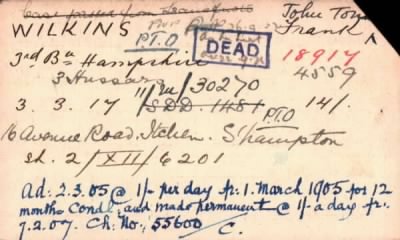 John Tom
WILKINS Frank
P.T.O
DEAD
18917
3rd Bn Hampshire
4559
3 Hussars
11/Ru/30270
3. 3. 17 S.D.D. 1481 P.T.O 14/-
16 Avenue Road. Itchen. S'hampton
Sh. 2/XII/6201
Ad: 2.3.05 @ 1/- per day fr: 1. March 1905 for 12
months Condl; and made permanent @ 1/- a day fr:
7.2.07. Ch. No: 55600/C.